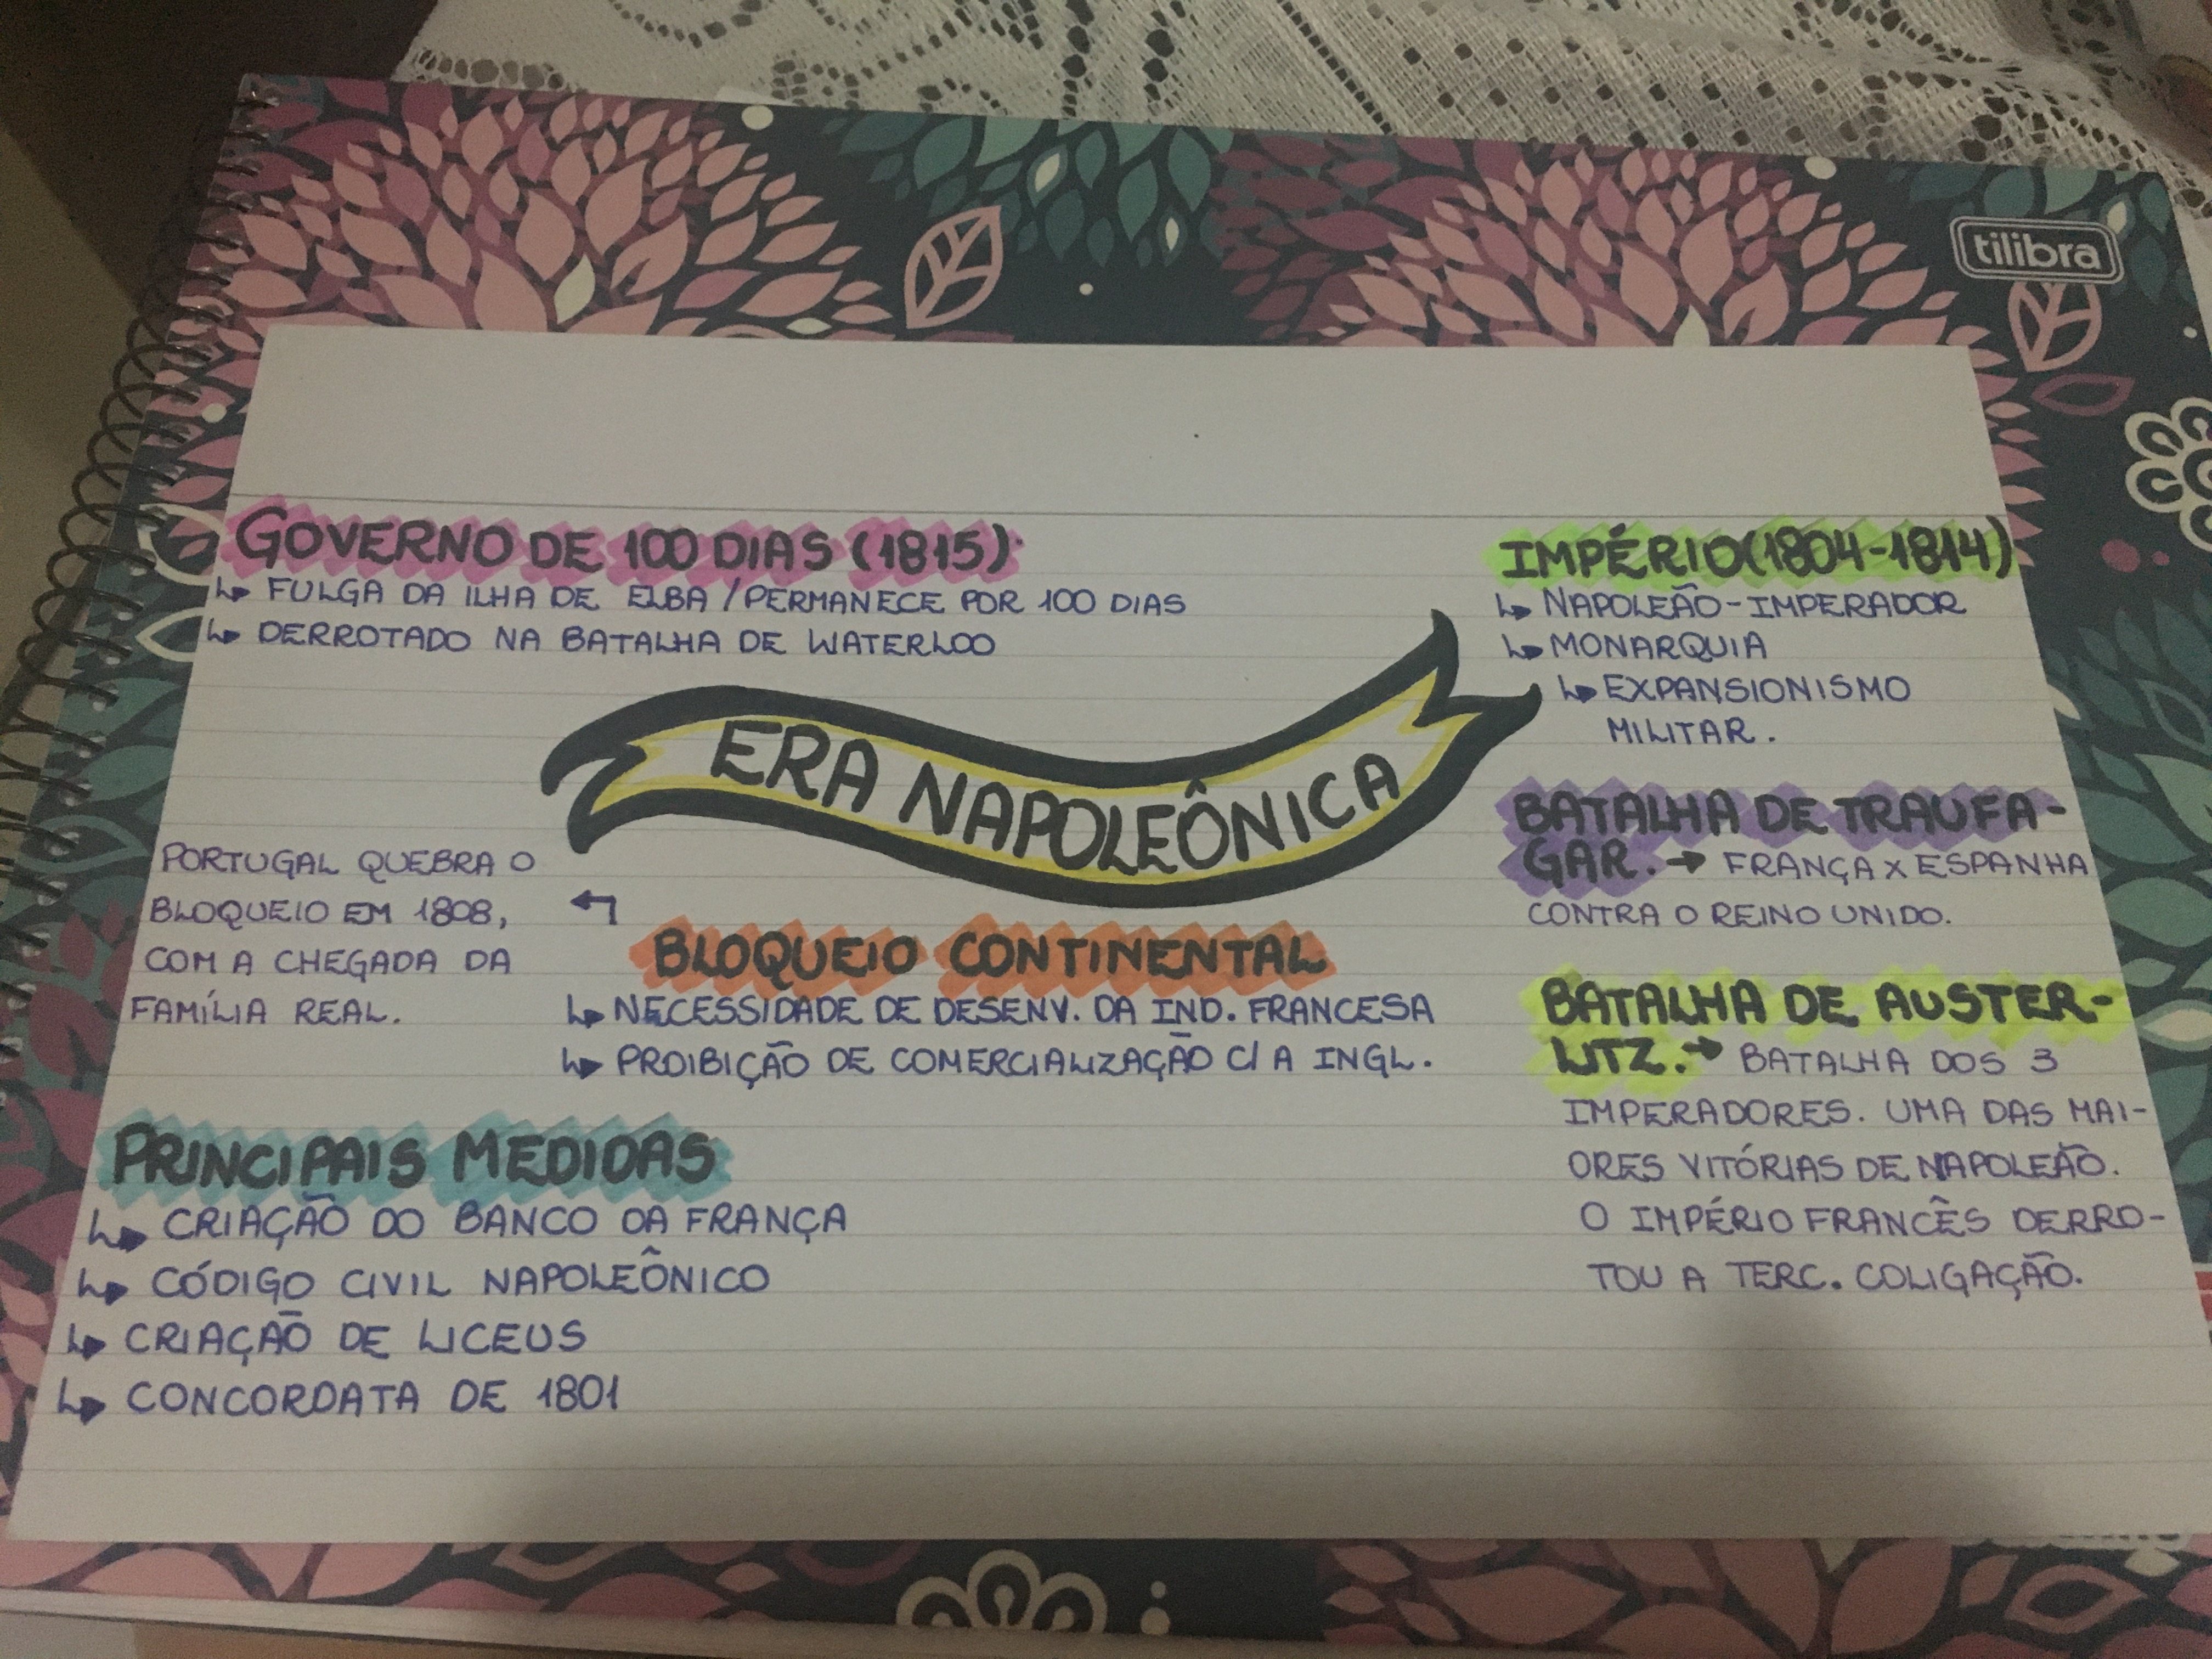 tilibra
GOVERNO DE 100 DIAS (1815):
FULGA DA ILHA DE ELBA / PERMANECE POR 100 DIAS
DERROTADO NA BATALHA DE WATERLOO
IMPÉRIO (1804-1814)
NAPOLEÃO - IMPERADOR
MONARQUIA
EXPANSIONISMO
MILITAR.
ERA NAPOLEÔNICA
BATALHA DE TRAUFA-
GAR. → FRANÇA X ESPANHA
CONTRA O REINO UNIDO.
PORTUGAL QUEBRA O
BLOQUEIO EM 1808,
COM A CHEGADA DA
FAMÍLIA REAL.
BLOQUEIO CONTINENTAL
NECESSIDADE DE DESENV. DA IND. FRANCESA
PROIBIÇÃO DE COMERCIALIZAÇÃO C/ A INGL.
BATALHA DE AUSTER-
LITZ. → BATALHA DOS 3
IMPERADORES. UMA DAS MAI-
ORES VITÓRIAS DE NAPOLEÃO.
O IMPÉRIO FRANCÊS DERRO-
TOU A TERC. COLIGAÇÃO.
PRINCIPAIS MEDIDAS
CRIAÇÃO DO BANCO DA FRANÇA
CÓDIGO CIVIL NAPOLEÔNICO
CRIAÇÃO DE LICEUS
CONCORDATA DE 1801